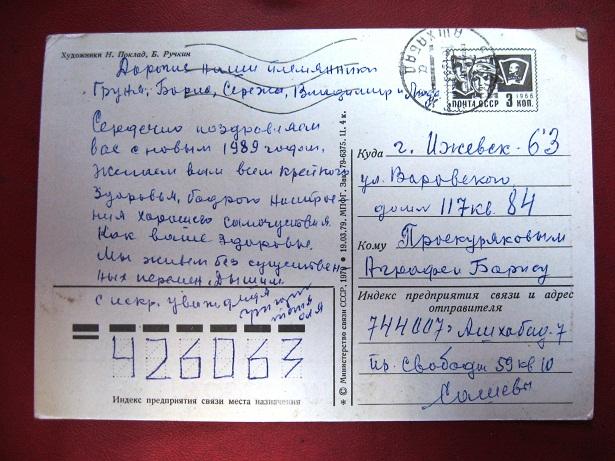 Художники Н. Поклад, Б. Ручкин
Дорогие наши племянники
Груня, Борис, Сережа, Владимир и Люда
Сердечно поздравляем
вас с новым 1989 годом,
желаем вам всем крепкого
здоровья, бодрого настрое
ния хорошего самочуствия.
Как ваше здоровье.
Мы живем без существен
ных перемен, дышим.
с искр. уважением
АШХАБАД
ПОЧТА СССР
1966
3 коп.
Куда г. Ижевск-63
ул. Воровского
дом 117 кв. 84
Кому Проскуряковым
Аграфен Борису
Индекс предприятия связи и адрес
отправителя
744007, Ашхабад-7
пр. Свободы 59 кв 10
Салиевы
426063
Индекс предприятия связи места назначения
* © Министерство связи СССР, 1979 ● 19.03.79. МПФГ. Зак. 79-6375. Ц. 4 к.